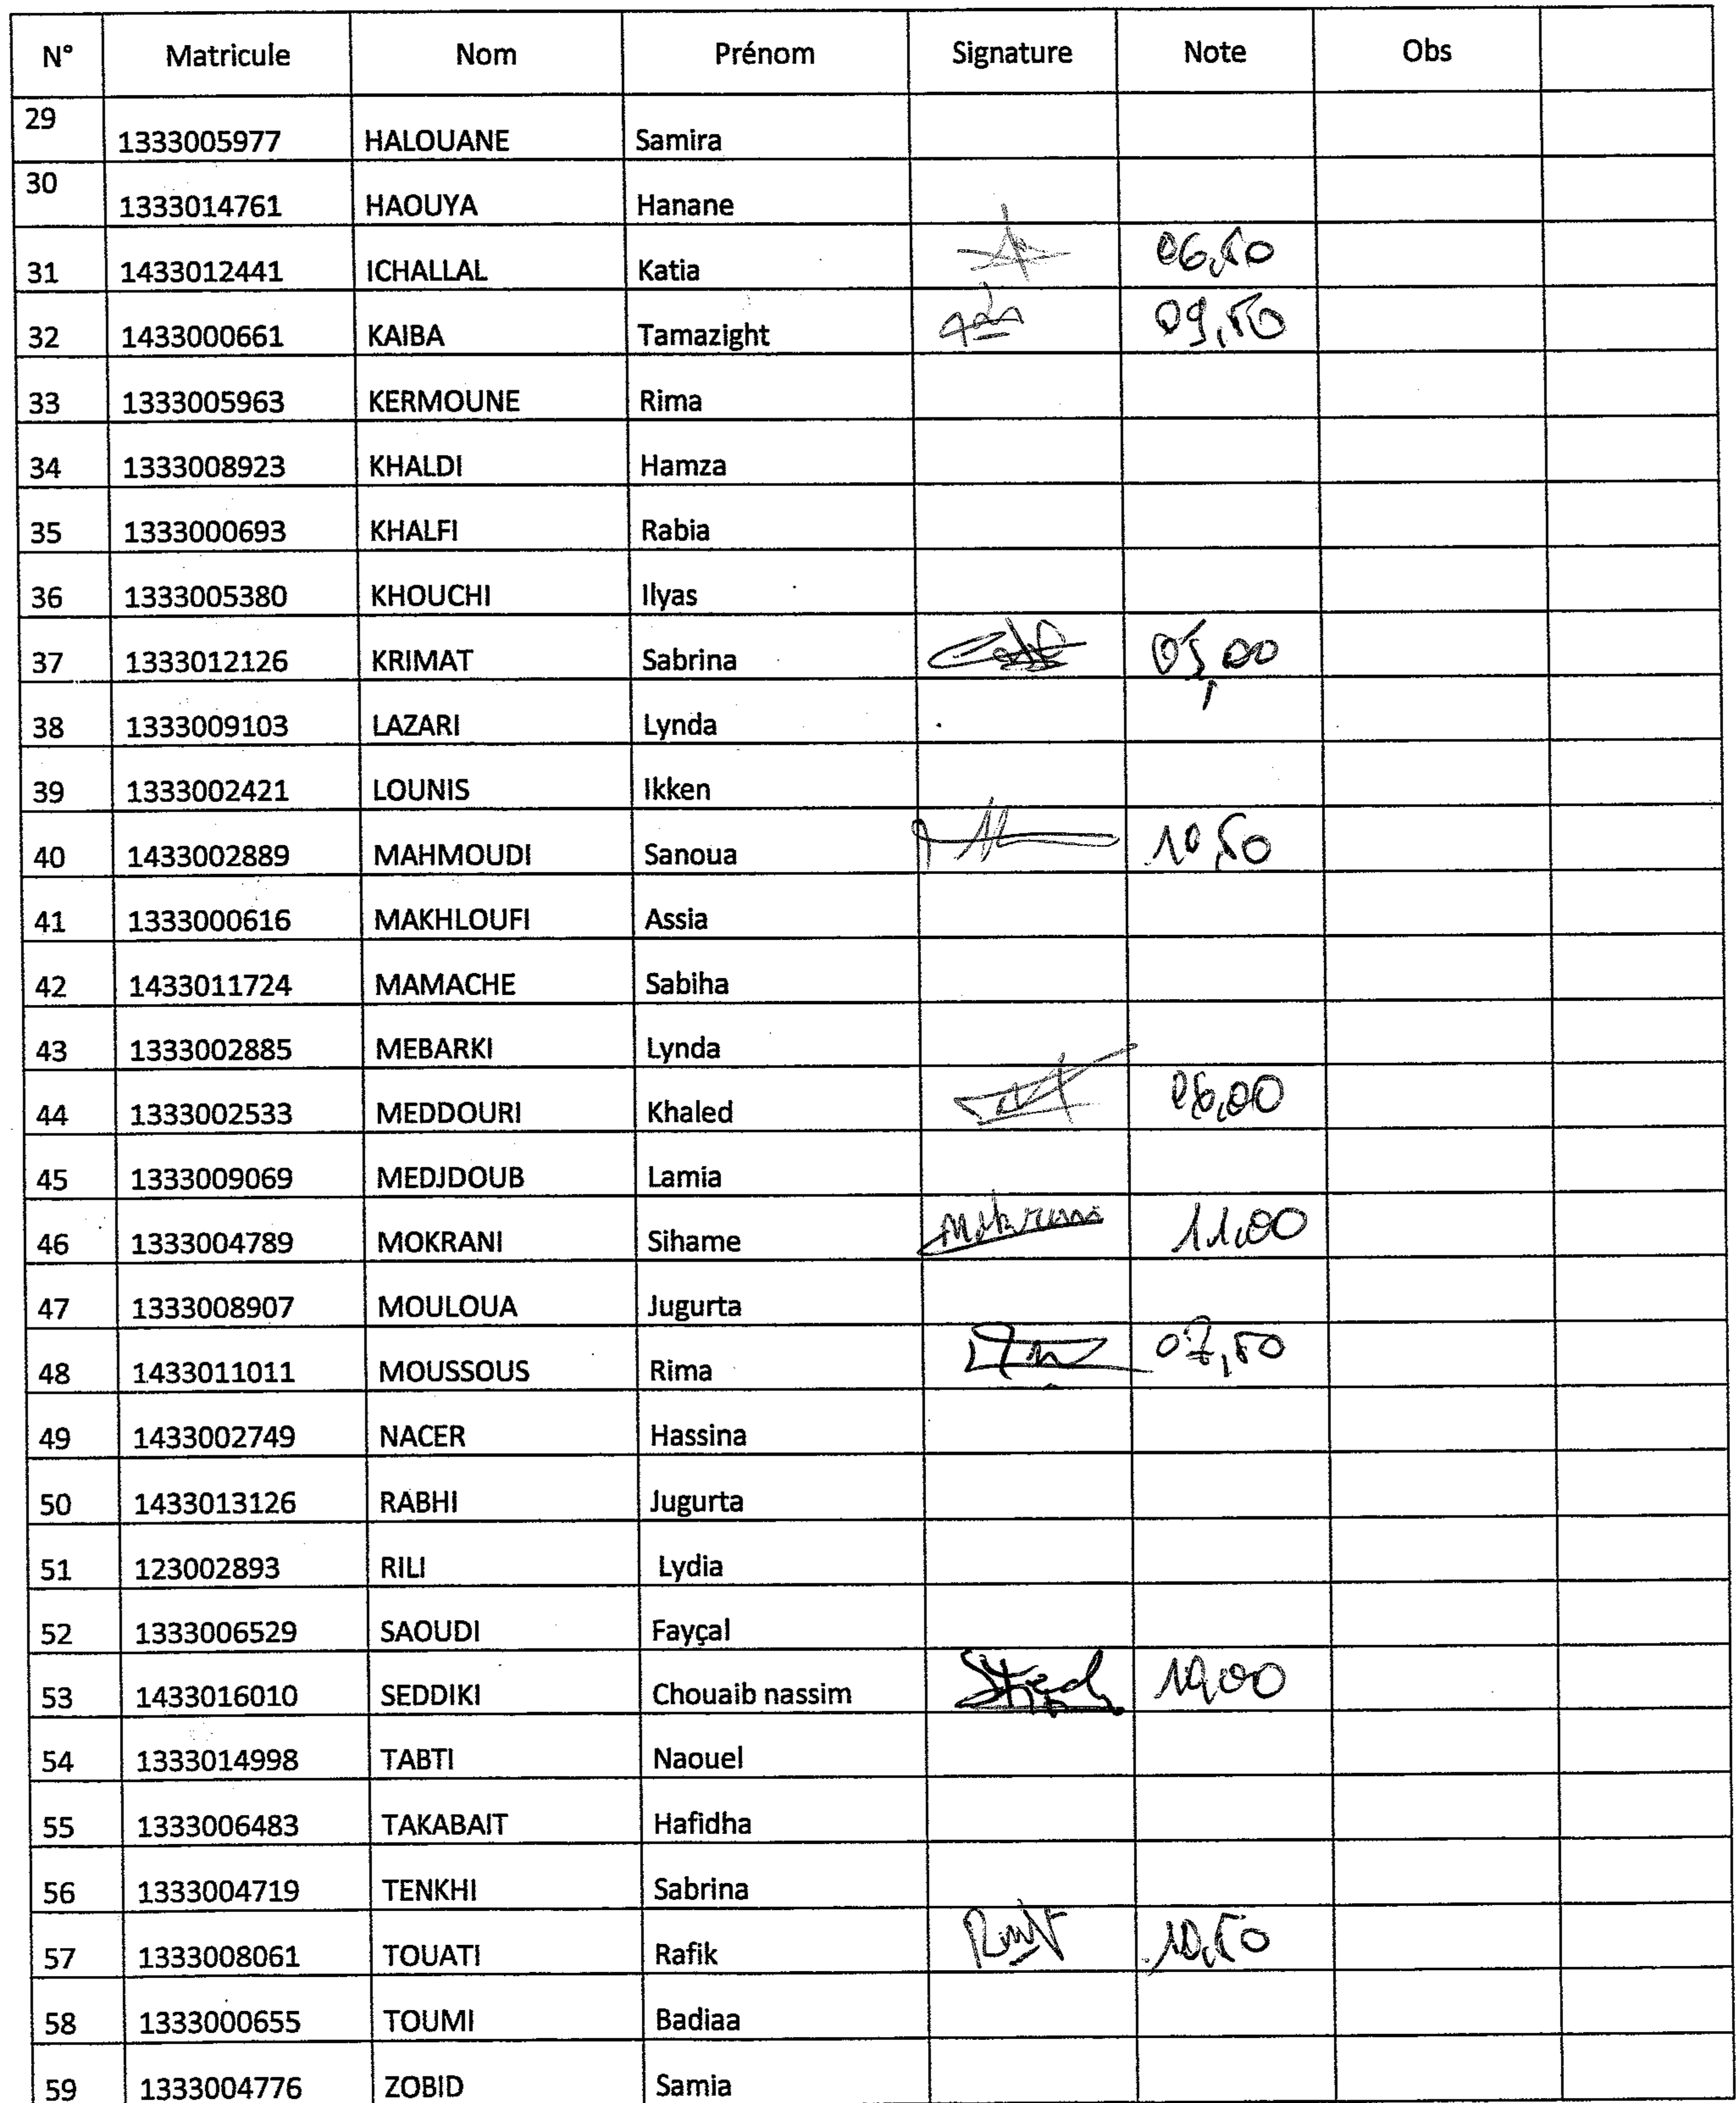 N° Matricule Nom Prénom Signature Note Obs
29 1333005977 HALOUANE Samira
30 1333014761 HAOUYA Hanane
31 1433012441 ICHALLAL Katia 06,50
32 1433000661 KAIBA Tamazight 09,50
33 1333005963 KERMOUNE Rima
34 1333008923 KHALDI Hamza
35 1333000693 KHALFI Rabia
36 1333005380 KHOUCHI Ilyas
37 1333012126 KRIMAT Sabrina 05,00
38 1333009103 LAZARI Lynda
39 1333002421 LOUNIS Ikken
40 1433002889 MAHMOUDI Sanoua 10,50
41 1333000616 MAKHLOUFI Assia
42 1433011724 MAMACHE Sabiha
43 1333002885 MEBARKI Lynda
44 1333002533 MEDDOURI Khaled 06,00
45 1333009069 MEDJDOUB Lamia
46 1333004789 MOKRANI Sihame 11,00
47 1333008907 MOULOUA Jugurta
48 1433011011 MOUSSOUS Rima 07,50
49 1433002749 NACER Hassina
50 1433013126 RABHI Jugurta
51 123002893 RILI Lydia
52 1333006529 SAOUDI Fayçal
53 1433016010 SEDDIKI Chouaib nassim 10,00
54 1333014998 TABTI Naouel
55 1333006483 TAKABAIT Hafidha
56 1333004719 TENKHI Sabrina
57 1333008061 TOUATI Rafik 10,50
58 1333000655 TOUMI Badiaa
59 1333004776 ZOBID Samia